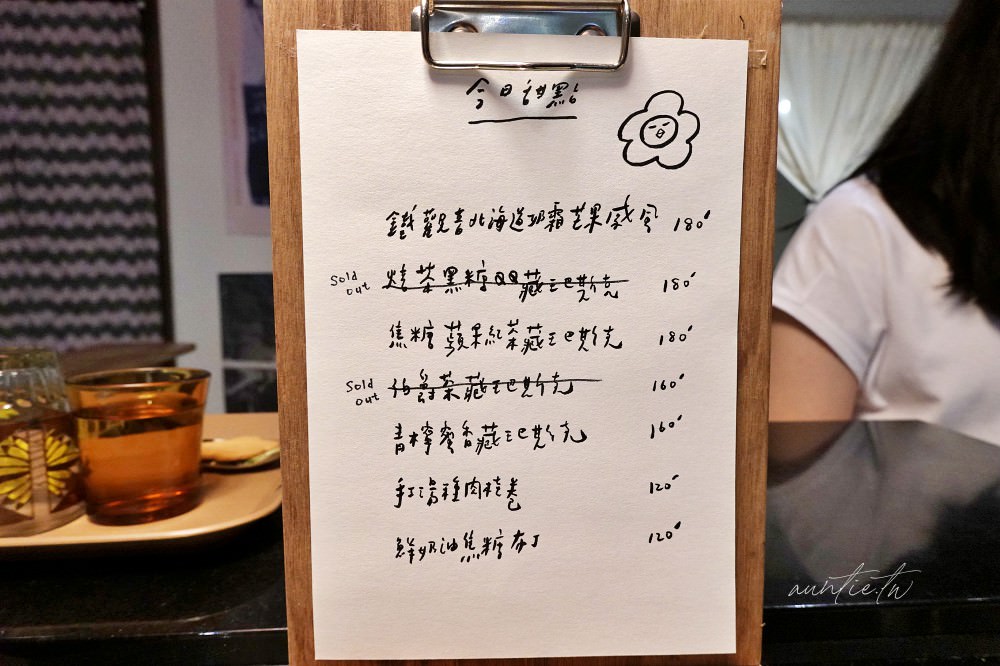 今日甜點
鐵觀音北海道奶霜芒果戚風 180
Sold out 焙茶黑糖QQ藏王巴斯克 180
焦糖蘋果紅茶藏王巴斯克 180
Sold out 伯爵茶藏王巴斯克 160
青檸蜜香藏王巴斯克 160
手工湯種肉桂卷 120
鮮奶油焦糖布丁 120
auntie.tw